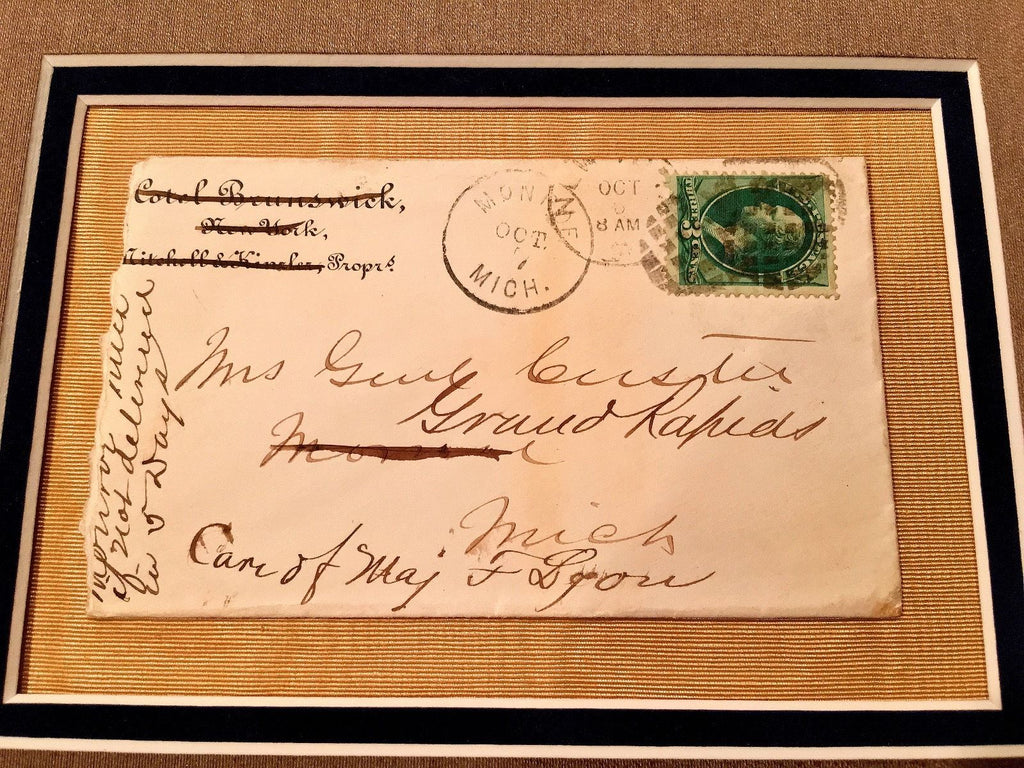 Hotel Brunswick,
New York,
Mitchell & Kinzler, Propr<sup>s</sup>.
MONR
OCT
7
MICH.
OCT
8 AM
Mrs Genl Custer
Grand Rapids
Monroe
Mich
Care of Maj F Lyon
Monroe Mich
If not delivered
in 5 Days